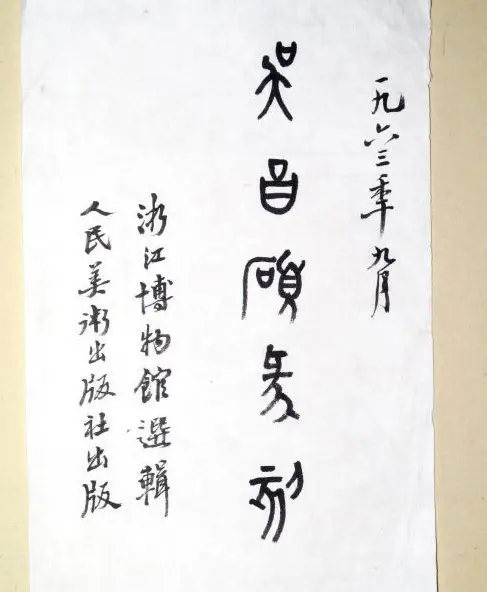 一九六三年九月
吴昌硕篆刻
浙江博物館選輯
人民美術出版社出版